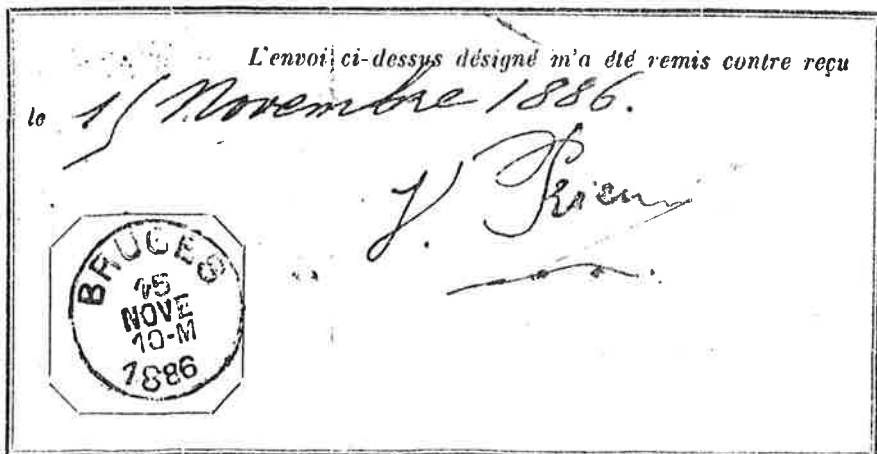 L'envoi ci-dessus désigné m'a été remis contre reçu
le 15 Novembre 1886.
BRUGES
15
NOVE
10-M
1886